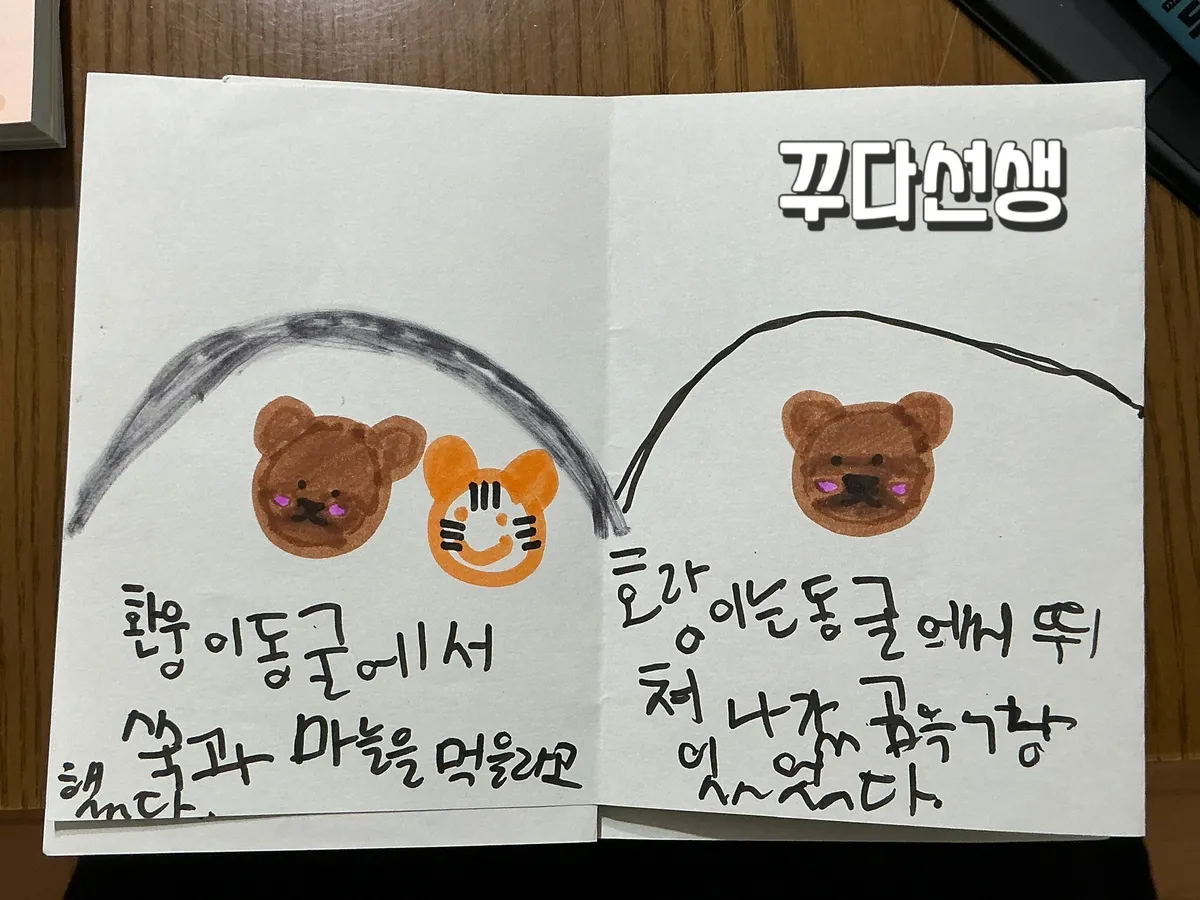 꾸다선생
환웅이동굴에서
쑥과 마늘을 먹을라고
했다.
호랑이는동굴에서 뛰
쳐 나갔 곰
있었다.